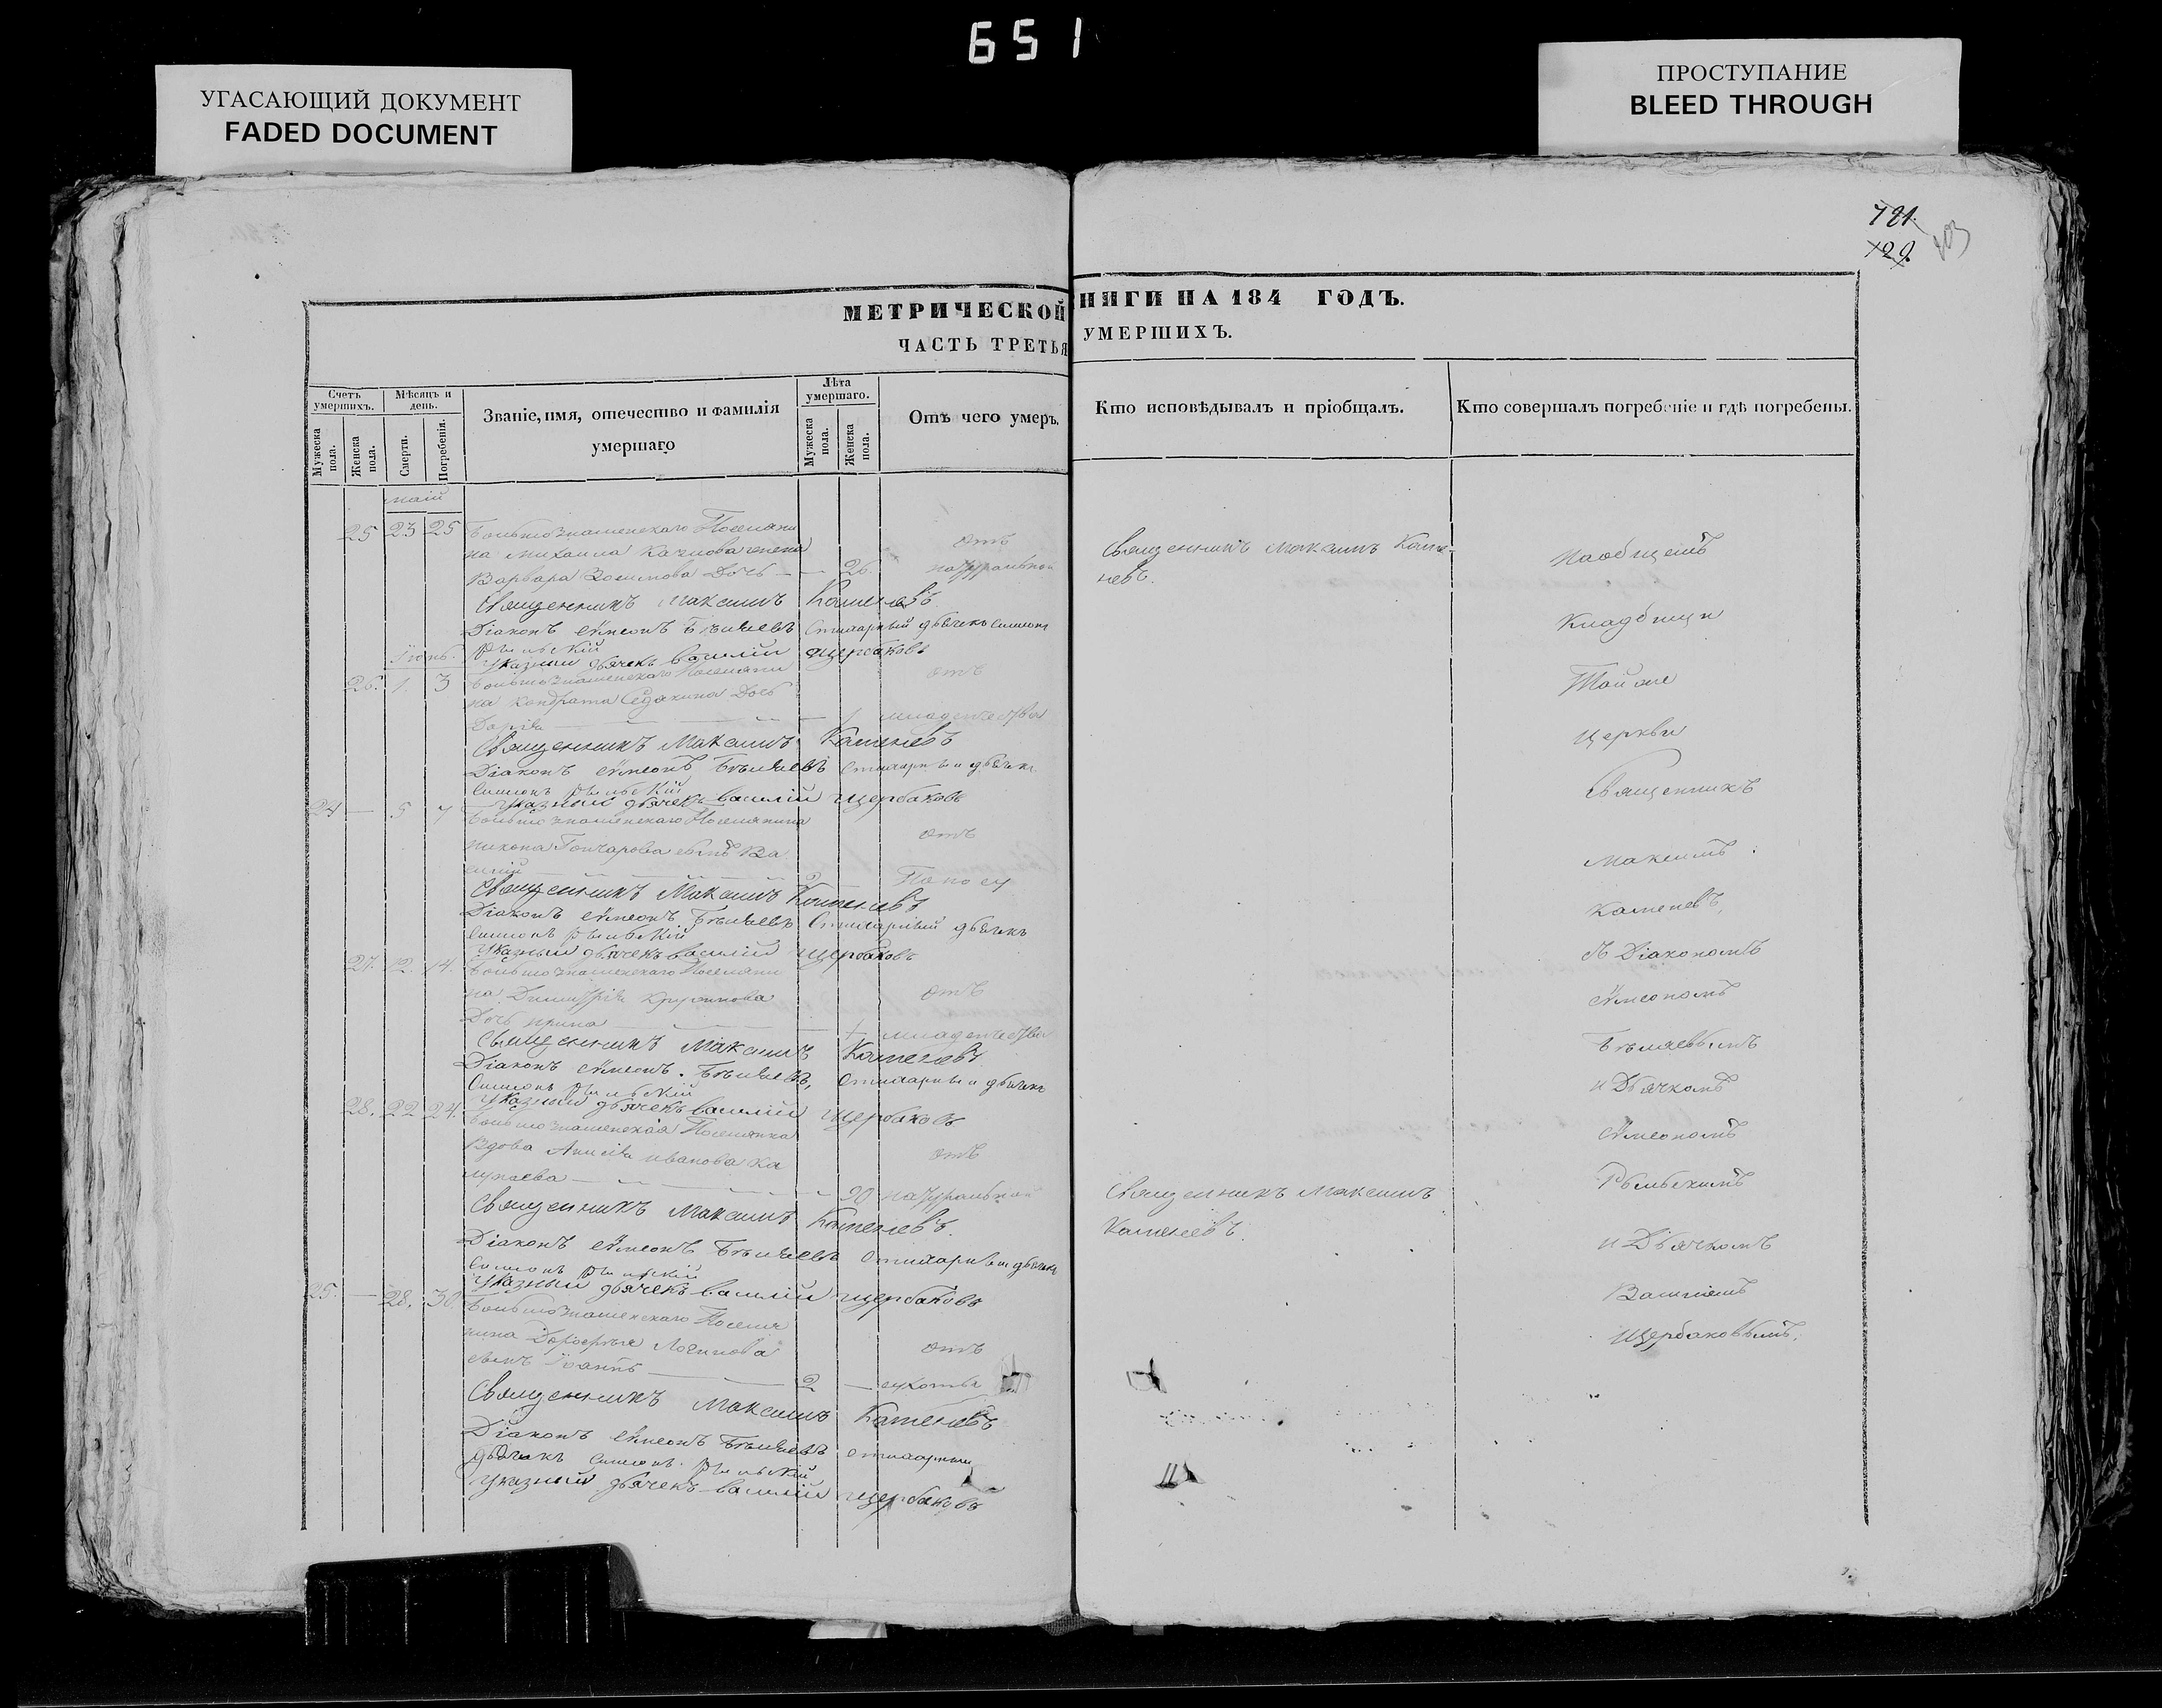 651
УГАСАЮЩИЙ ДОКУМЕНТ
FADED DOCUMENT
ПРОСТУПАНИЕ
BLEED THROUGH
721.
729.
МЕТРИЧЕСКОЙ
НИГИ НА 184 ГОДЪ.
ЧАСТЬ ТРЕТЬЯ
УМЕРШИХЪ.
Счетъ умершихъ.
Мѣсяцъ и день.
Званіе, имя, отечество и фамилія умершаго
Лѣта умершаго.
Отъ чего умеръ.
Кто исповѣдывалъ и пріобщалъ.
Кто совершалъ погребеніе и гдѣ погребены.
Мужеска пола.
Женска пола.
Смерти.
Погребенія.
Мужеска пола.
Женска пола.
маій
25 23 25 Большознаменскаго Поселяни
на Михаила жена отъ
Варвара Зосимова Дочь 26. натуральной
Священникъ Максимъ Каме-
невъ.
Священникъ Максимъ Каменевъ
Діаконъ сѵмеонъ Бѣляевъ дьячекъ Симеонъ
Рыльскій
Іюнь. Указный дьячекъ василій щербаковъ
26. 1. 3 Большознаменскаго Поселяни отъ
на Кондрата Дочь
Дарія 1 младенчества
Священникъ Максимъ Каменевъ
Діаконъ сѵмеонъ Бѣляевъ дьячекъ
Симеонъ Рыльскій
Указный дьячекъ василій щербаковъ
24 — 5 7 Большознаменскаго Поселянина
никона Гончарова сынъ Ва отъ
силій 2 Поносу
Священникъ Максимъ Каменевъ
Діаконъ сѵмеонъ Бѣляевъ дьячекъ
Симеонъ Рыльскій
Указный дьячекъ василій щербаковъ
27. 12. 14. Большознаменскаго Поселяни
на Димитрія отъ
Дочь ирина младенчества
Священникъ Максимъ Каменевъ
Діаконъ сѵмеонъ. Бѣляевъ, дьячекъ
Симеонъ Рыльскій
Указный дьячекъ василій щербаковъ
28. 22 24. Большознаменская Поселянка
Вдова Анисія иванова Ка отъ
90 натуральной
Священникъ Максимъ
Каменевъ.
Священникъ Максимъ Каменевъ.
Діаконъ сѵмеонъ Бѣляевъ дьячекъ
Симеонъ Рыльскій
Указный дьячекъ василій щербаковъ
25. — 28. 30. Большознаменскаго Поселя
нина Дорофея Логинова отъ
сынъ Іоаннъ 2 — сухоты
Священникъ Максимъ Каменевъ
Діаконъ сѵмеонъ Бѣляевъ
дьячекъ Симеонъ Рыльскій
Указный дьячекъ василій щербаковъ
На общемъ
Кладбищи
Той же
Церкви
Священникъ
Максимъ
Каменевъ,
съ Діакономъ
сѵмеономъ
Бѣляевымъ
и Дьячкомъ
сѵмеономъ
Рыльскимъ
и Дьячкомъ
Василіемъ
Щербаковымъ.